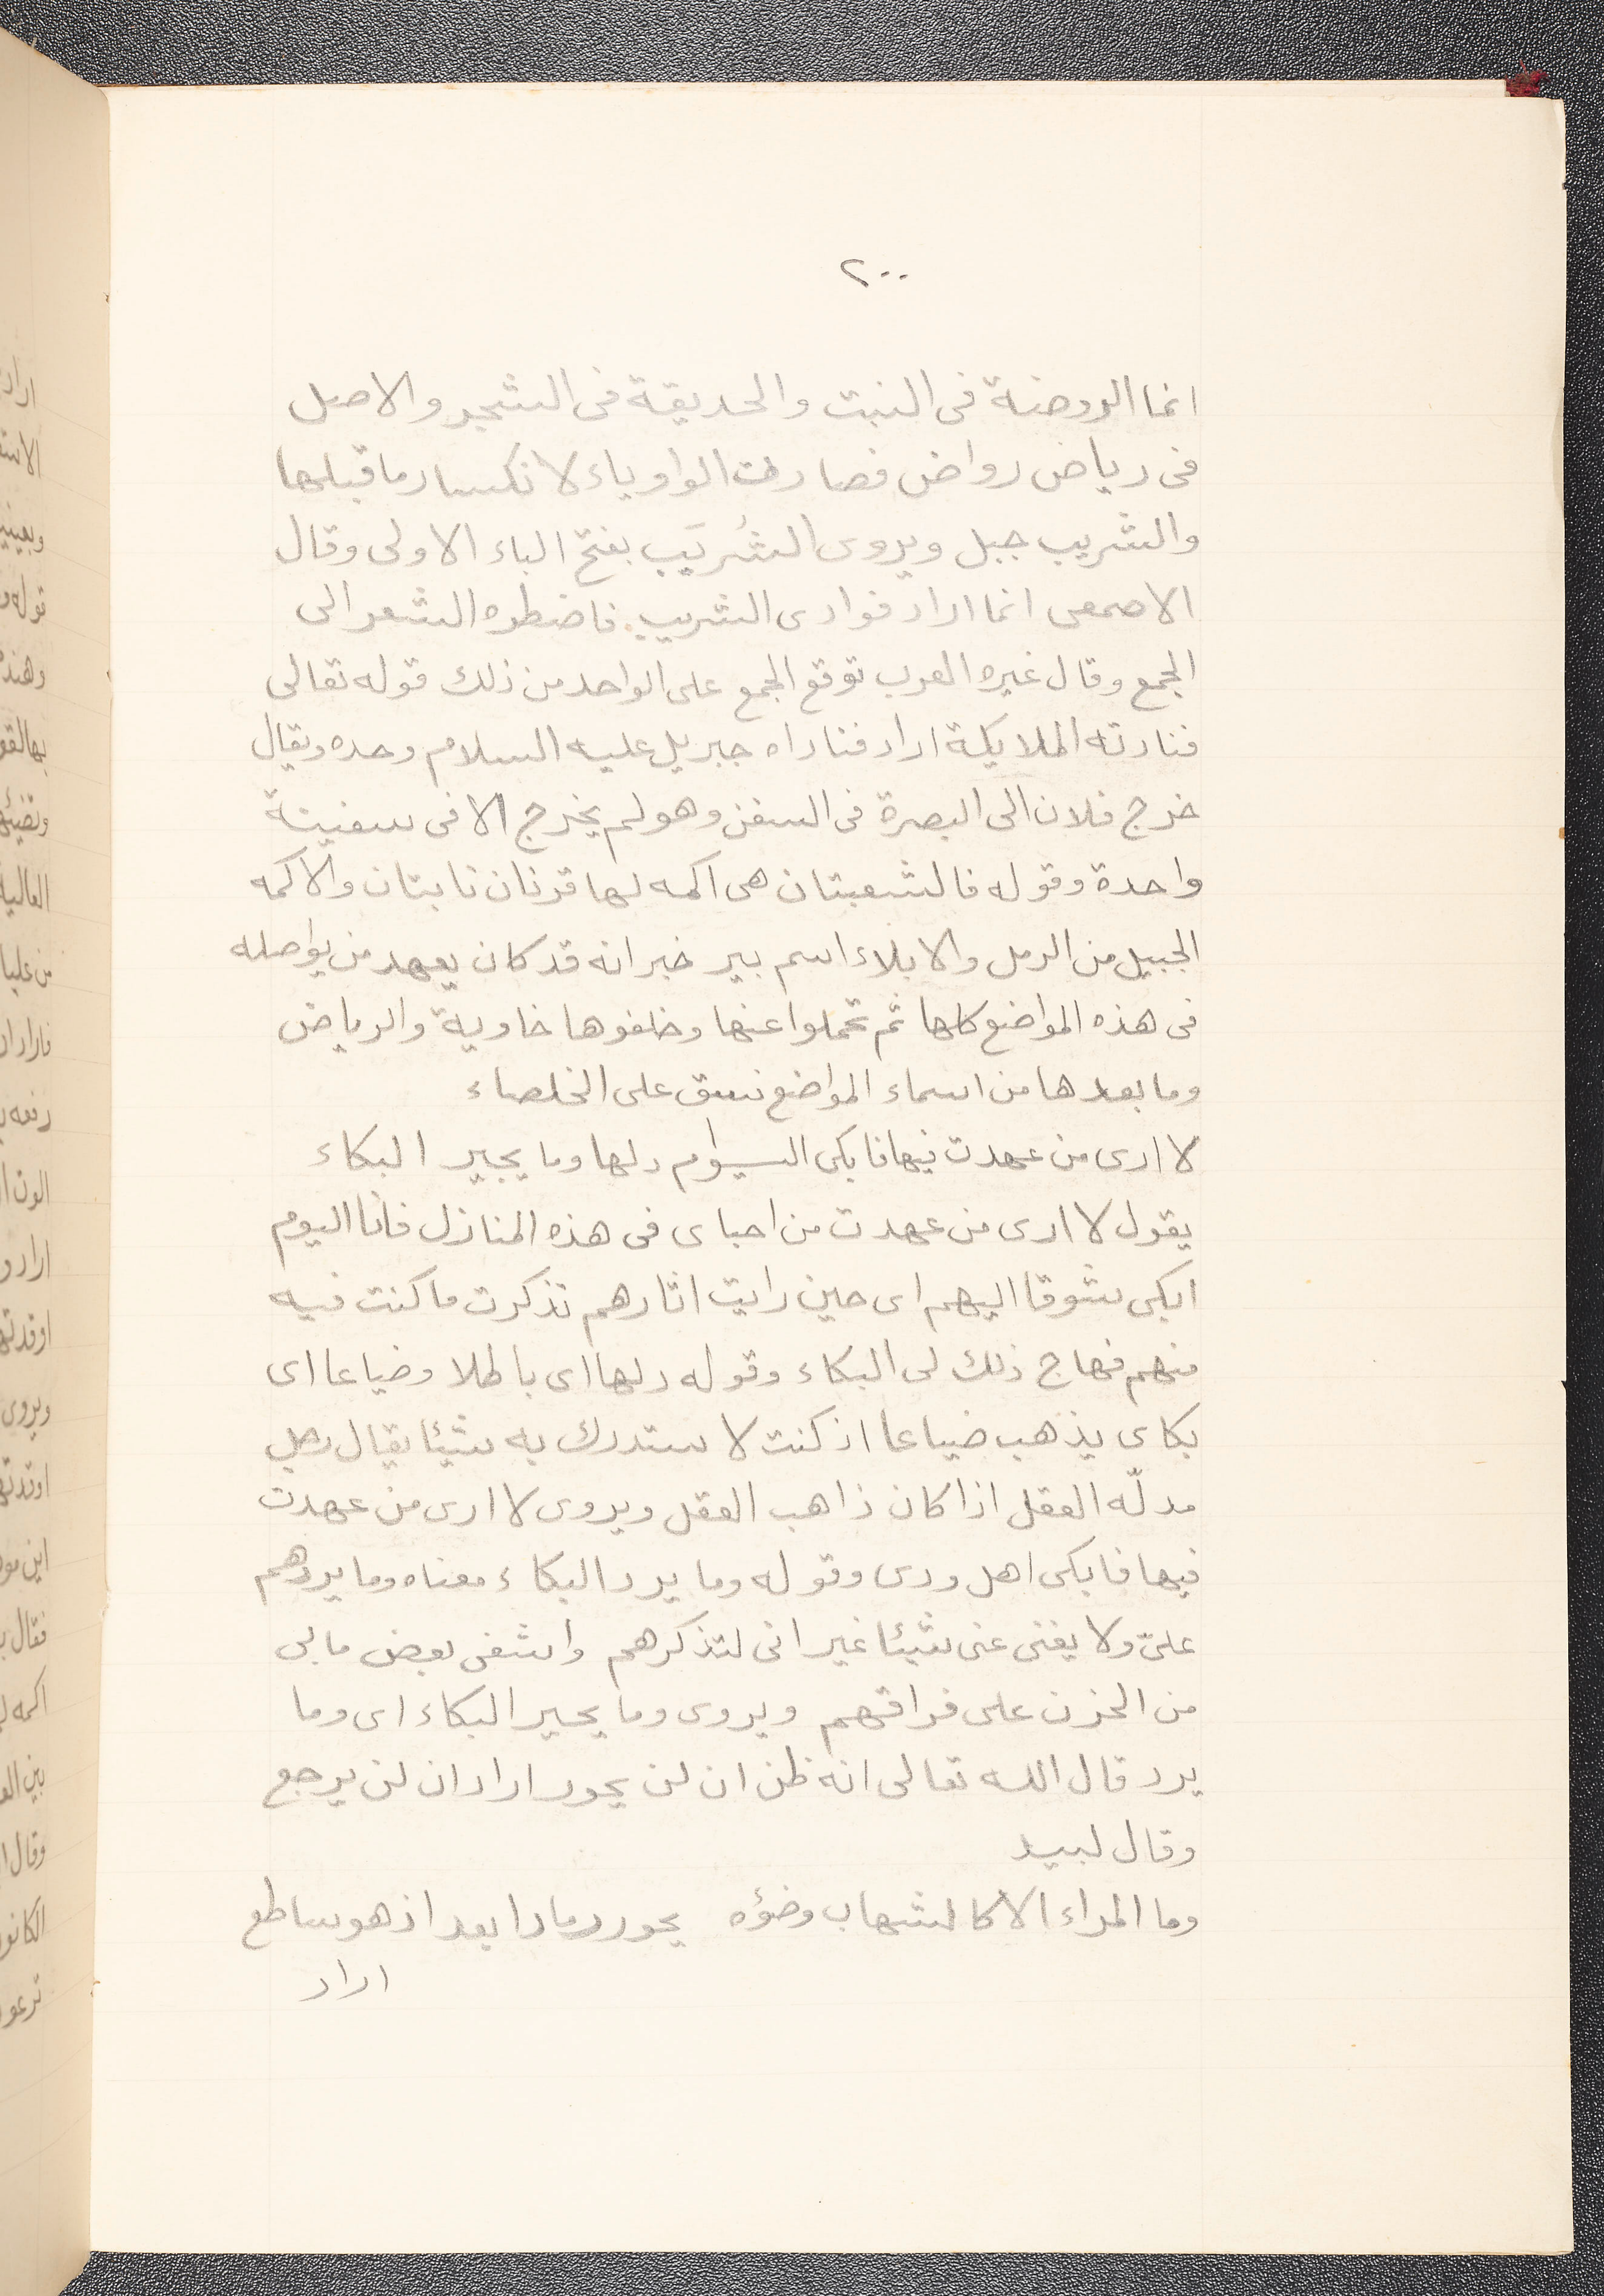 ٢٠٠
انما الروضة فى النبت والحديقة فى الشجر والاصل
فى رياض رواض فصارت الواو ياء لانكسار ما قبلها
والشريب جبل ويروى الشُريَب بفتح الباء الاولى وقال
الاصمعى انما اراد فوادى الشريب فاضطره الشعر الى
الجمع وقال غيره العرب توقع الجمع على الواحد من ذلك قوله تعالى
فنادته الملايكة اراد فناداه جبريل عليه السلام وحده ويقال
خرج فلان الى البصرة فى السفن وهو لم يخرج الا فى سفينة
واحدة وقوله فالشعبتان هى اكمه لها قرنان نابتان والاكمه
الجبيل من الرمل والابلاء اسم بير خبر انه قد كان يعهد من يواصله
فى هذه المواضع كلها ثم تحملوا عنها وخلفوها خاوية والرياض
وما بعدها من اسماء المواضع نسق على الخلصاء
لا ارى من عهدت فيها فابكى اليوم دلها وما يحير البكاء
يقول لا ارى من عهدت من احباى فى هذه المنازل فانا اليوم
ابكى شوقا اليهم اى حين رايت اثارهم تذكرت ما كنت فيه
منهم فهاج ذلك لى البكاء وقوله دلها اى باطلا وضياعا اى
بكاى يذهب ضياعا اذ كنت لا ستدرك به شيئا يقال رجل
مدلّه العقل اذا كان ذاهب العقل ويروى لا ارى من عهدت
فيها فابكى اهل ودى وقوله وما يرد البكاء معناه وما يردهم
علىّ ولا يغنى عنى شيئا غير انى لتذكرهم واشفى بعض ما بى
من الحزن على فراقهم ويروى وما يحير البكاء اى وما
يرد قال الله تعالى انه ظن ان لن يحور اراد ان لن يرجع
وقال لبيد
وما المراء الا كالشهاب وضؤه يحور رمادا بعد اذ هو ساطع
اراد